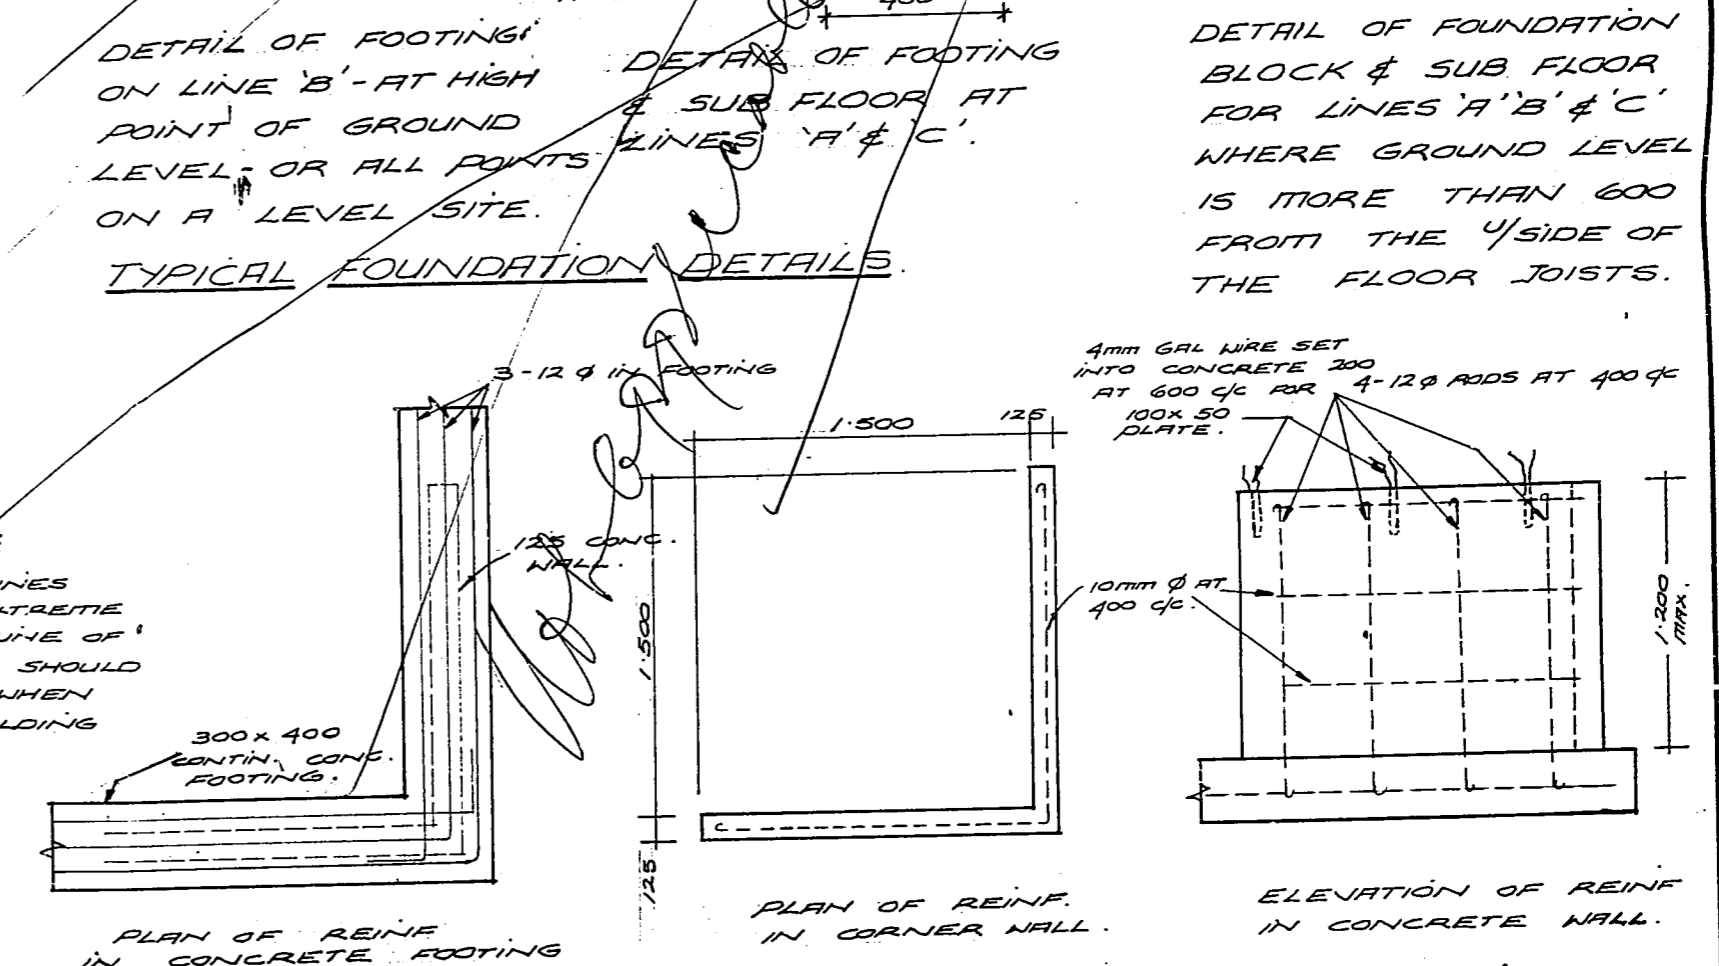 DETAIL OF FOOTING
ON LINE 'B' - AT HIGH
POINT OF GROUND
LEVEL - OR ALL POINTS
ON A LEVEL SITE.
DETAIL OF FOOTING
& SUB FLOOR AT
LINES 'A' & 'C'.
DETAIL OF FOUNDATION
BLOCK & SUB FLOOR
FOR LINES 'A' 'B' & 'C'
WHERE GROUND LEVEL
IS MORE THAN 600
FROM THE U/SIDE OF
THE FLOOR JOISTS.
TYPICAL FOUNDATION DETAILS.
3-12 Ø IN FOOTING
125 CONC.
WALL.
300 x 400
CONTIN. CONC.
FOOTING.
LINE OF
SHOULD
WHEN
PLAN OF REINF
IN CONCRETE FOOTING
1·500
125
1·500
125
10mm Ø AT
400 c/c.
PLAN OF REINF.
IN CORNER WALL.
4mm GAL WIRE SET
INTO CONCRETE 200
AT 600 c/c FOR
100 x 50
PLATE.
4-12 Ø RODS AT 400 c/c
1·200
MAX.
ELEVATION OF REINF
IN CONCRETE WALL.